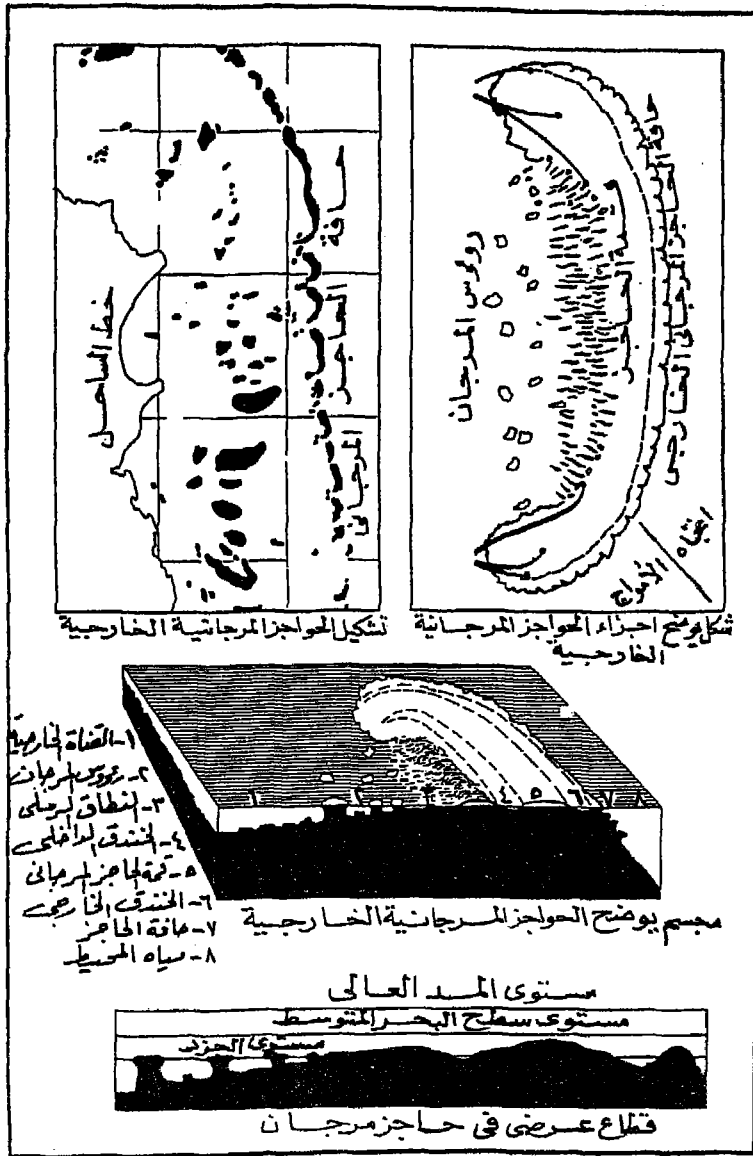 حافة الحاجز المرجانى الخارجى
قمة الحاجز
رووس المرجان
اتجاه الأمواج
شكل يوضح اجزاء الحواجز المرجانية
الخارجية
حافة
الحاجز
المرجانى
خط الساحل
تشكيل الحواجز المرجانية الخارجية
١- القناة الخارجية
٢- رووس المرجان
٣- النطاق الرملى
٤- الخندق الداخلى
٥- قمة الحاجز المرجانى
٦- الخندق الخارجى
٧- حافة الحاجز
٨- مياه المحيط
١ ٤ ٥ ٦ ٧ ٨
مجسم يوضح الحواجز المرجانية الخارجية
مستوى المد العالى
مستوى سطح البحر المتوسط
مستوى الجزر
قطاع عرضى فى حاجز مرجان